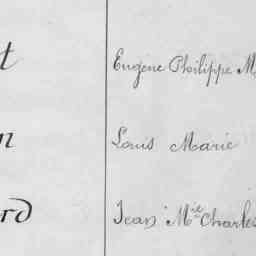 t Eugene Philippe M
n Louis Marie
rd Jean Mie Charles